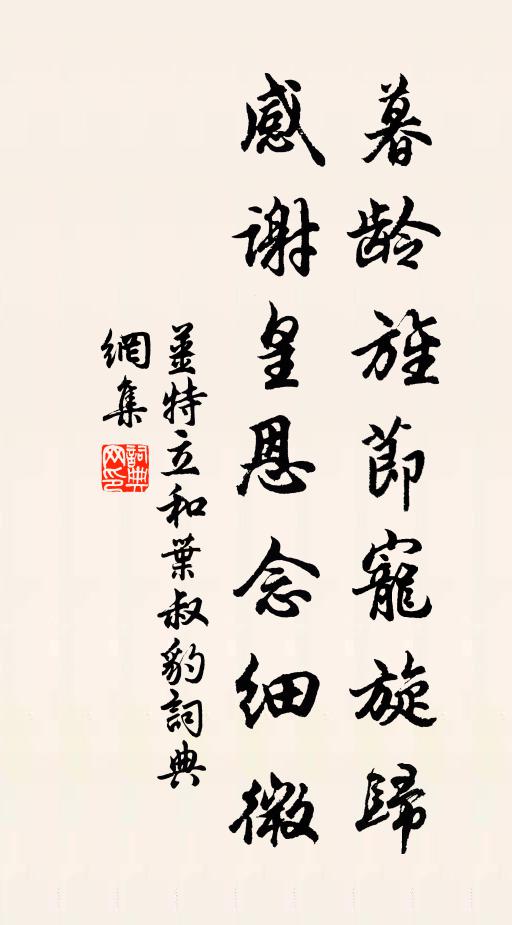 暮龄旌節寵旋歸
感谢皇恩念细微
姜特立和葉叔豹詞典
網集
詞典網印